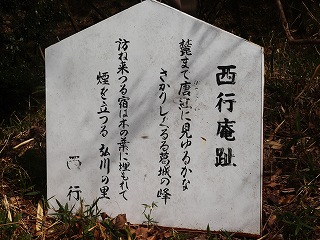 西行庵趾
麓まで唐紅に見ゆるかな
さかりしぐるる葛城の峰
訪ね来つる宿は木の葉に埋もれて
煙を立つる 弘川の里
西行